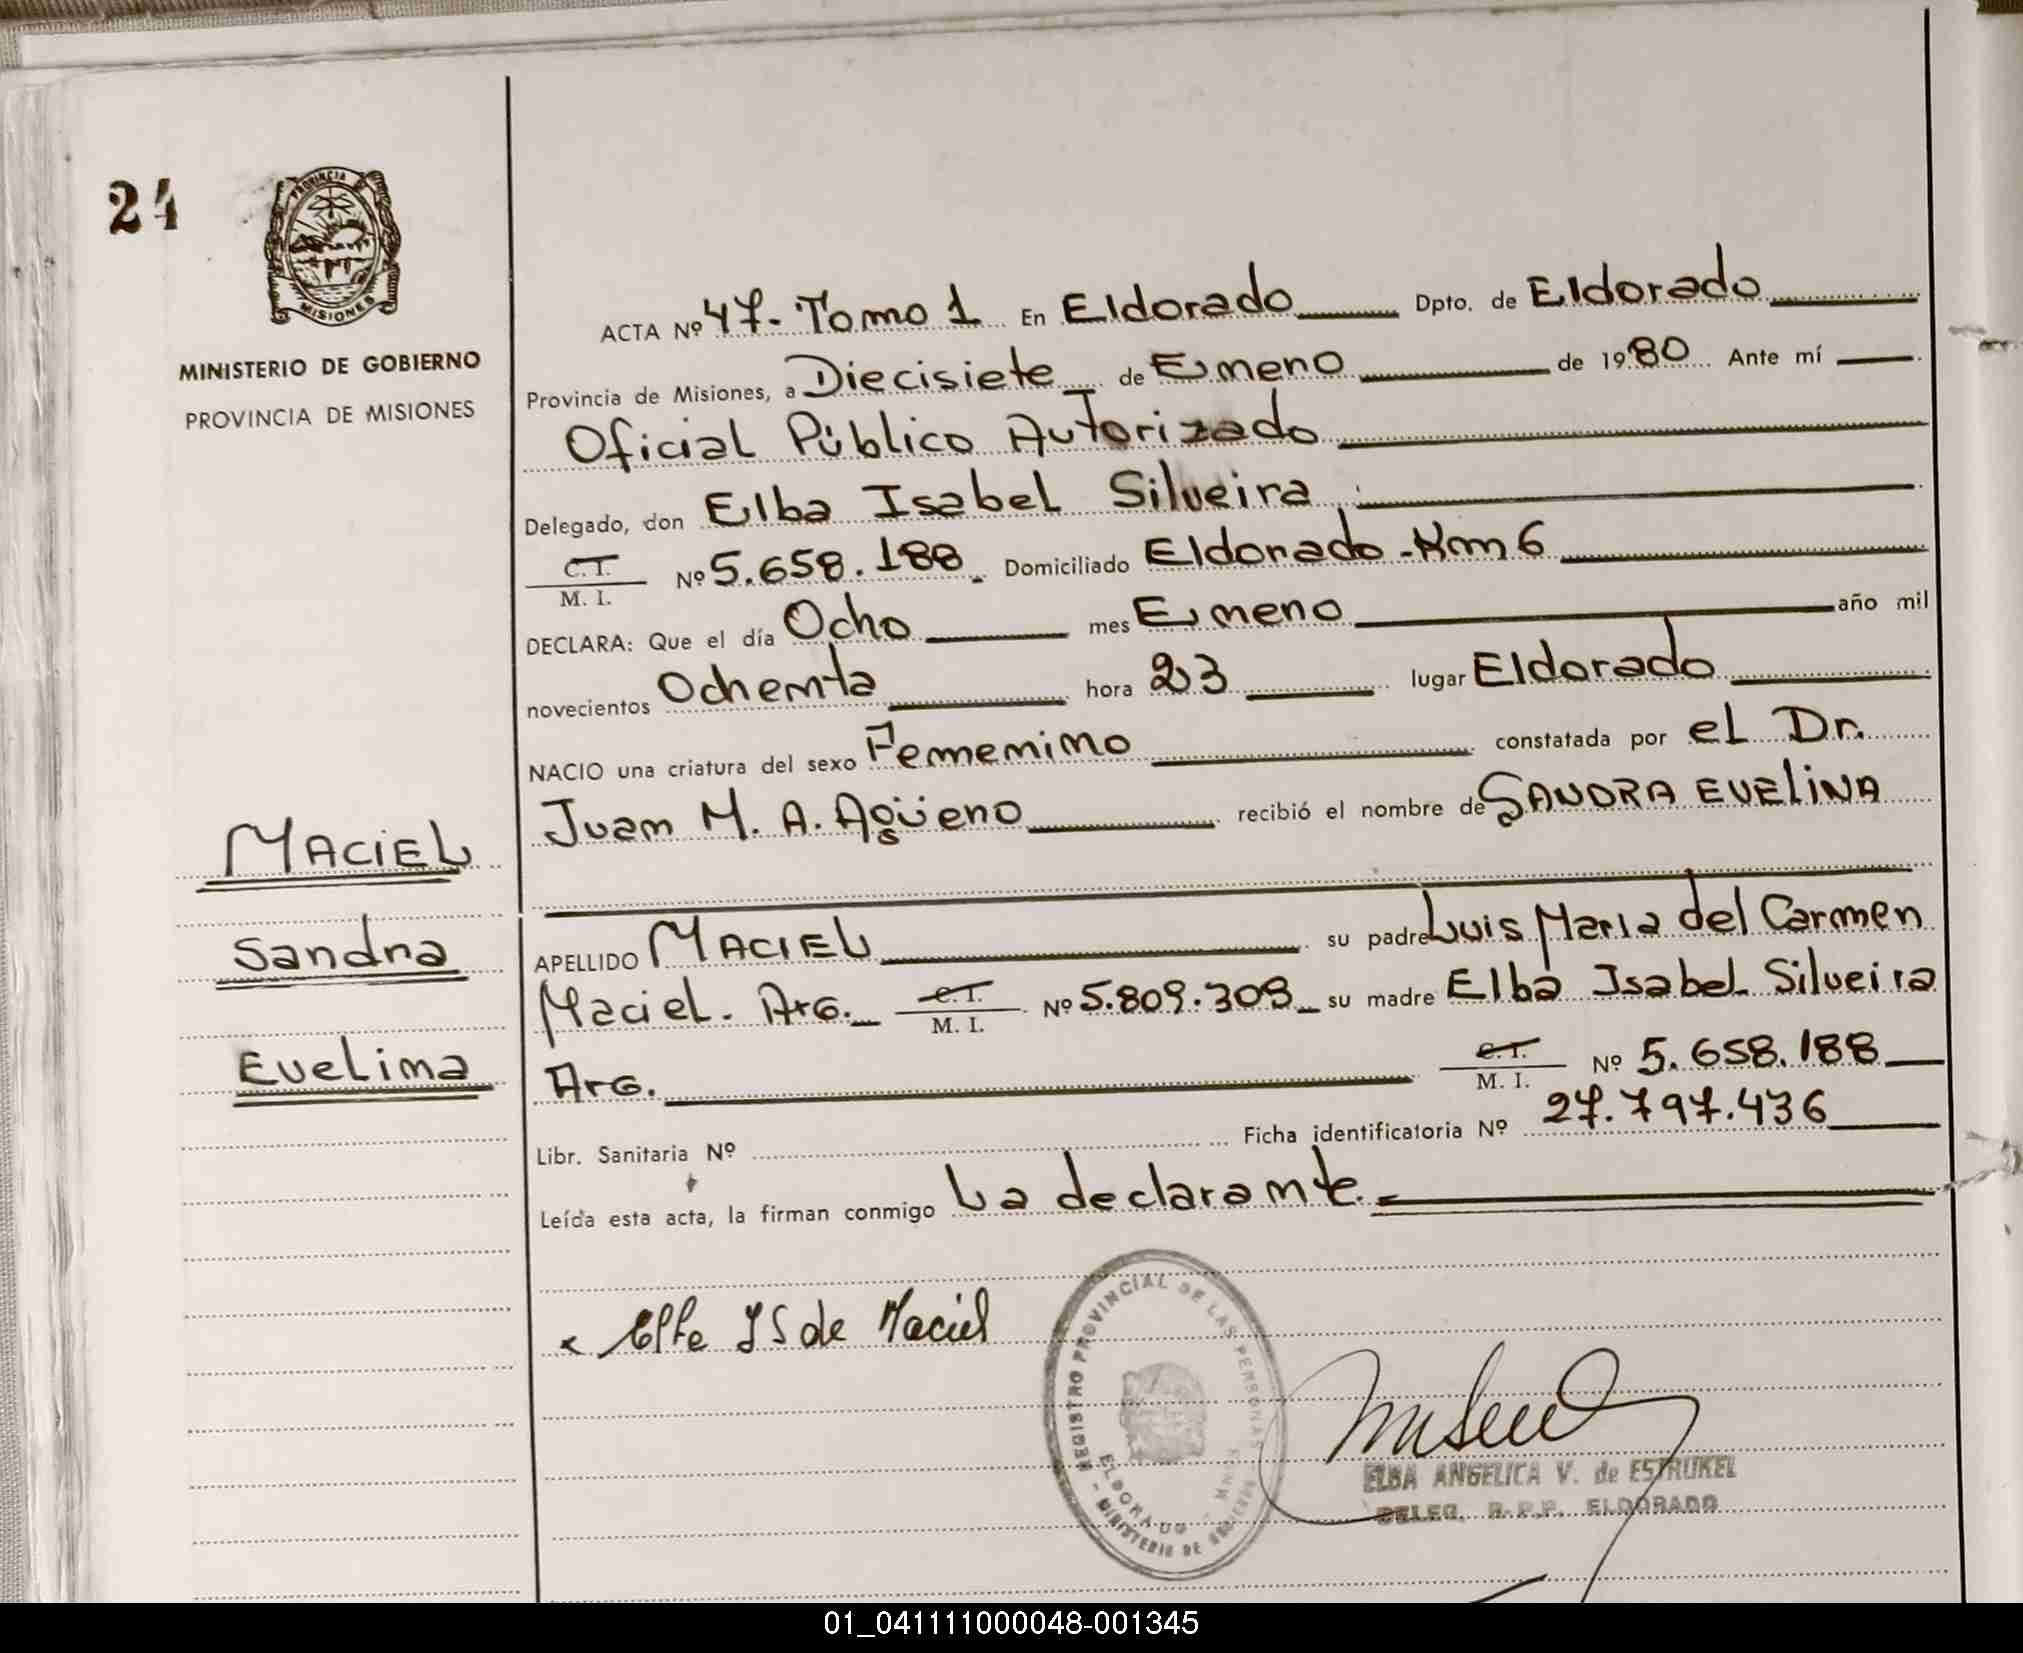 24
PROVINCIA
MISIONES
MINISTERIO DE GOBIERNO
PROVINCIA DE MISIONES
ACTA Nº 47. Tomo 1 En Eldorado Dpto. de Eldorado
Provincia de Misiones, a Diecisiete de Enero de 1980 Ante mí
Oficial Público Autorizado
Delegado, don Elba Isabel Silveira
C.T. / M. I. Nº 5.658.188. Domiciliado Eldorado-Km 6
DECLARA: Que el día Ocho mes Enero año mil
novecientos Ochenta hora 23 lugar Eldorado
NACIO una criatura del sexo Femenino constatada por el Dr.
Juan M. A. Agüero recibió el nombre de SANDRA EVELINA
MACIEL
Sandra
Evelina
APELLIDO MACIEL su padre Luis Maria del Carmen
Maciel. Arg. C.I. / M. I. Nº 5.809.309 su madre Elba Isabel Silveira
Arg. C.I. / M. I. Nº 5.658.188
Libr. Sanitaria Nº Ficha identificatoria Nº 27.797.436
Leída esta acta, la firman conmigo La declarante.
Elba IS de Maciel
REGISTRO PROVINCIAL DE LAS PERSONAS
ELDORADO
MINISTERIO DE GOBIERNO
ELBA ANGELICA V. de ESTRUKEL
DELEG. R.P.P. ELDORADO
01_041111000048-001345